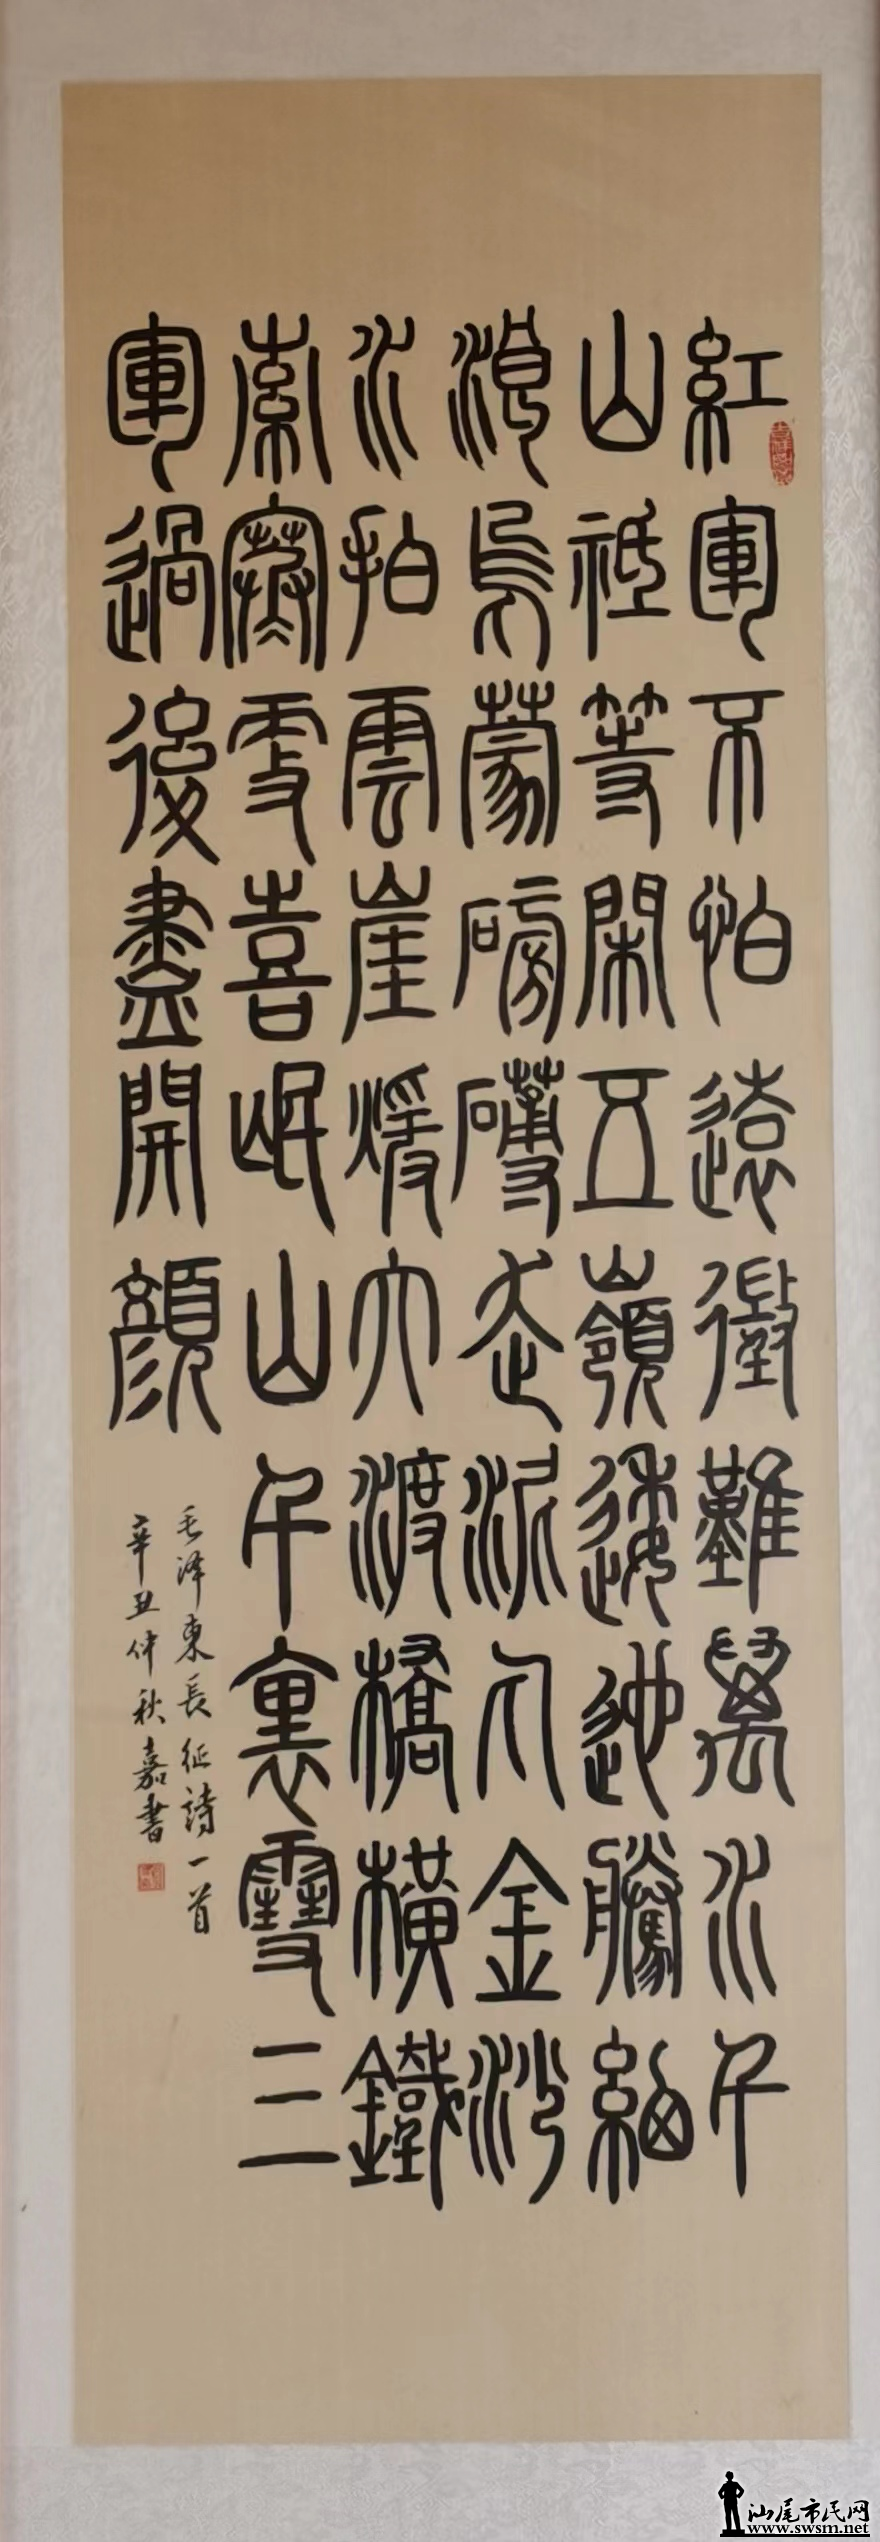 紅軍不怕遠徵難萬水千
山祗等閑五嶺逶迤騰細
浪烏蒙磅礴走泥丸金沙
水拍雲崖煖大渡橋橫鐵
索寒更喜岷山千裏雪三
軍過後盡開顏
毛泽東長征詩一首
辛丑仲秋嘉書
汕尾市民网
www.swsm.net